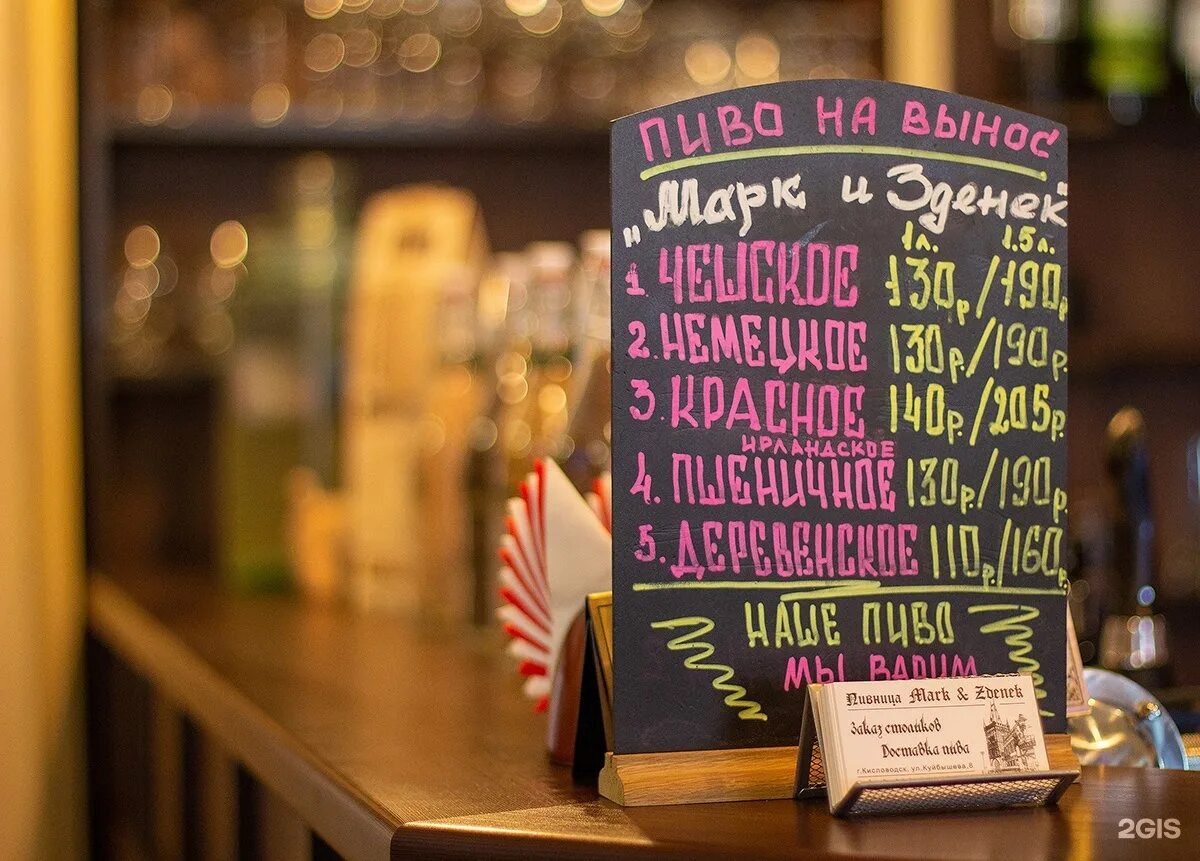 ПИВО НА ВЫНОС
„Марк и Зденек"
1л. 1.5л.
1. ЧЕШСКОЕ 130р/190р
2. НЕМЕЦКОЕ 130р/190р
3. КРАСНОЕ 140р/205р
ИРЛАНДСКОЕ
4. ПШЕНИЧНОЕ 130р/190р
5. ДЕРЕВЕНСКОЕ 110р/160р
НАШЕ ПИВО
МЫ ВАРИМ
Пивница Mark & Zdenek
Заказ столиков
Доставка пива
г.Кисловодск, ул.Куйбышева,8
2GIS